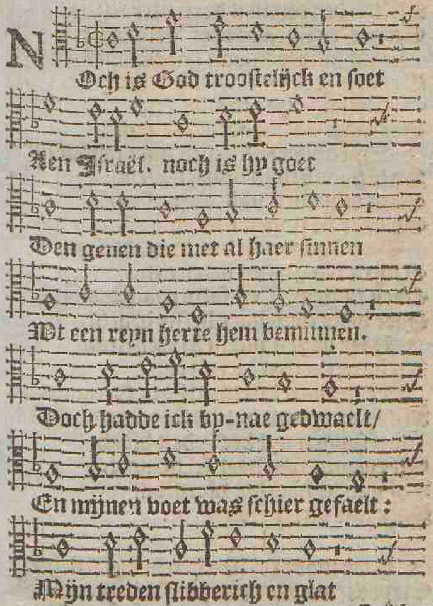 NOch is God troostelijck en soet
Aen Israël. noch is hy goet
Den genen die met al haer sinnen
Wt een reyn herte hem beminnen.
Doch hadde ick by-nae gedwaelt/
En mijnen voet was schier gefaelt:
Mijn treden slibberich en glat